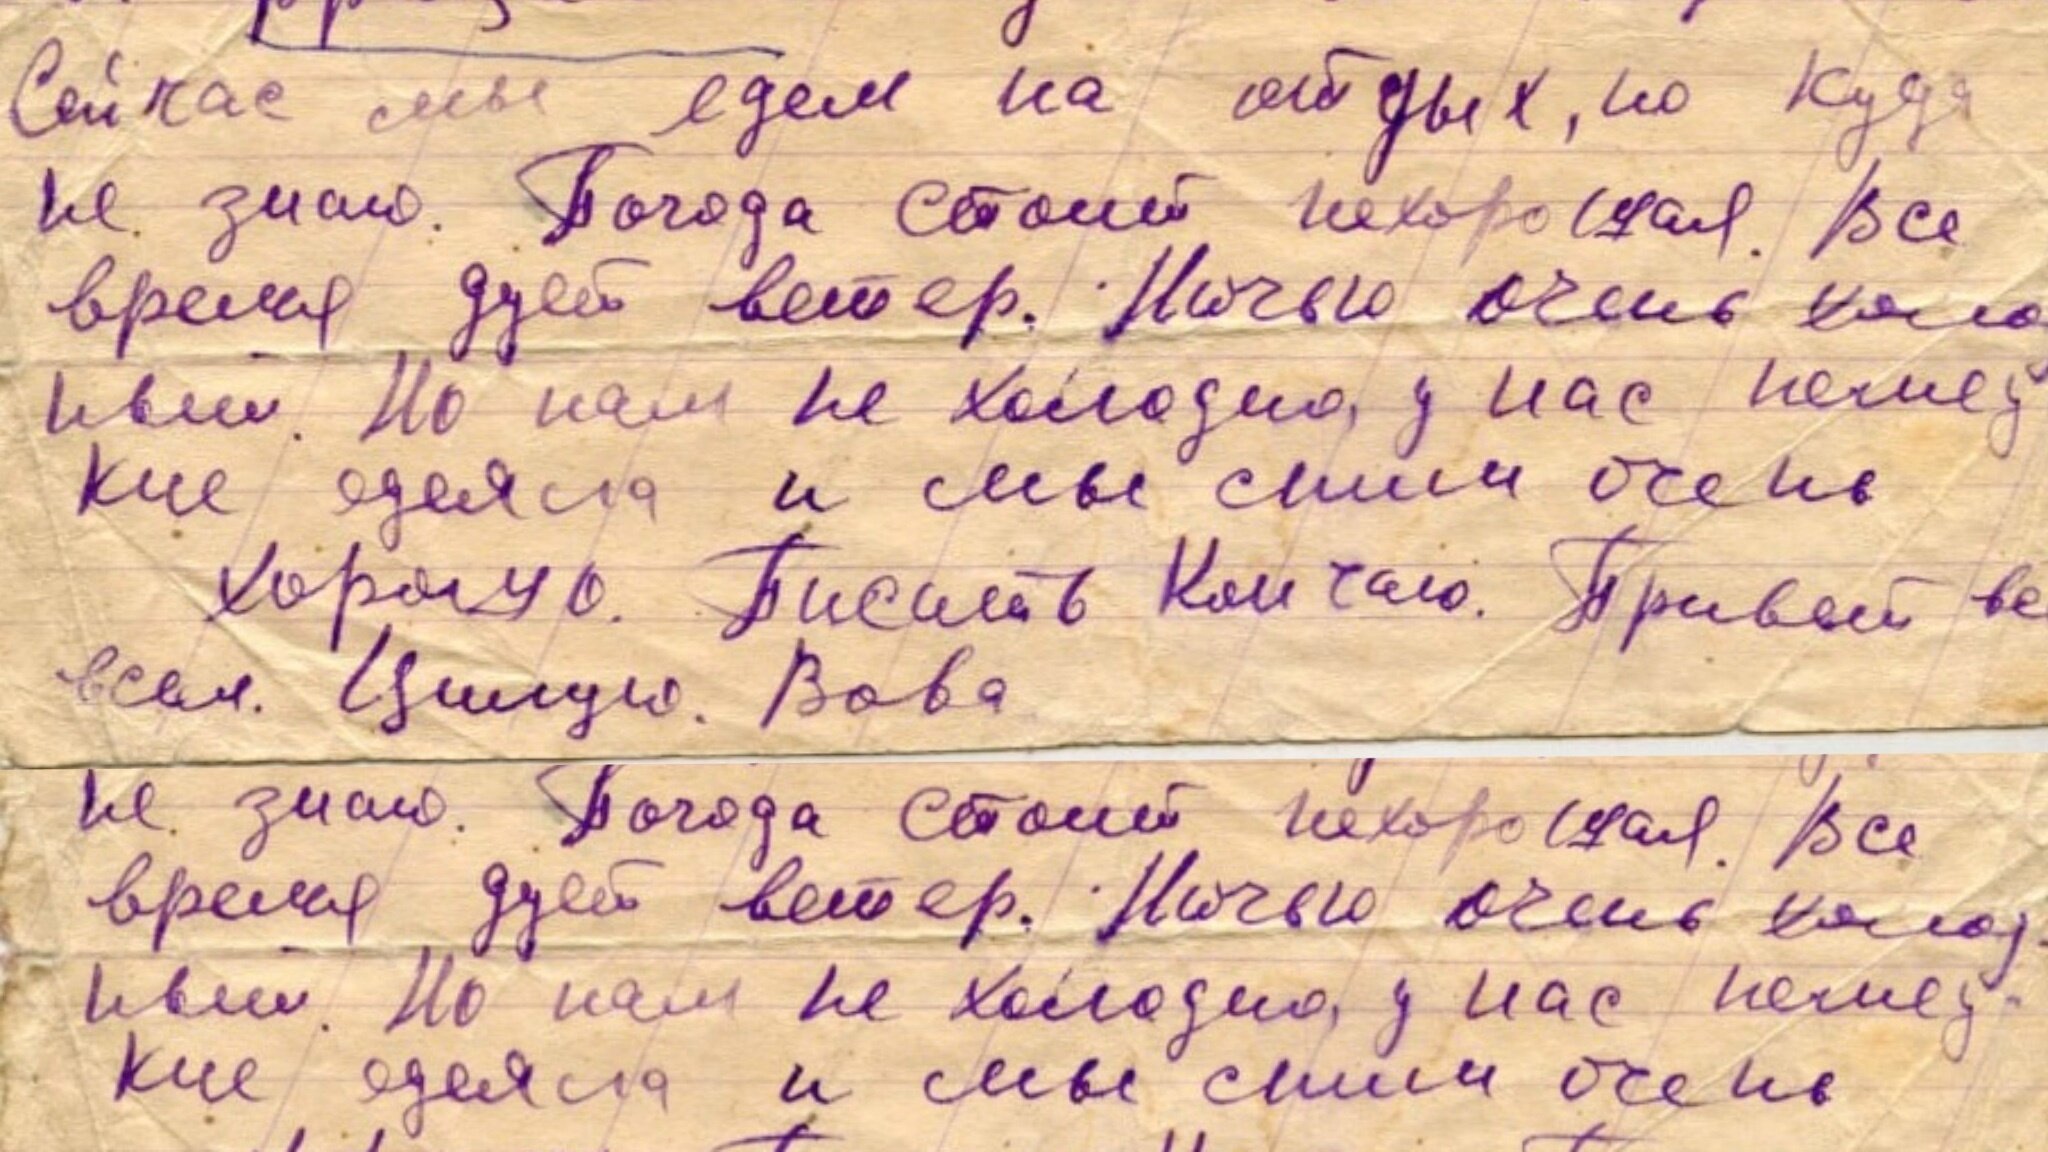 Сейчас мы едем на отдых, но куда
не знаю. Погода стоит нехорошая. Все
время дует ветер. Ночью очень холо
ный. Но нам не холодно, у нас немец
кие одеяла и мы спим очень
хорошо. Писать кончаю. Привет
всем. Цилую. Вова
не знаю. Погода стоит нехорошая. Все
время дует ветер. Ночью очень холод
ный. Но нам не холодно, у нас немец-
кие одеяла и мы спим очень